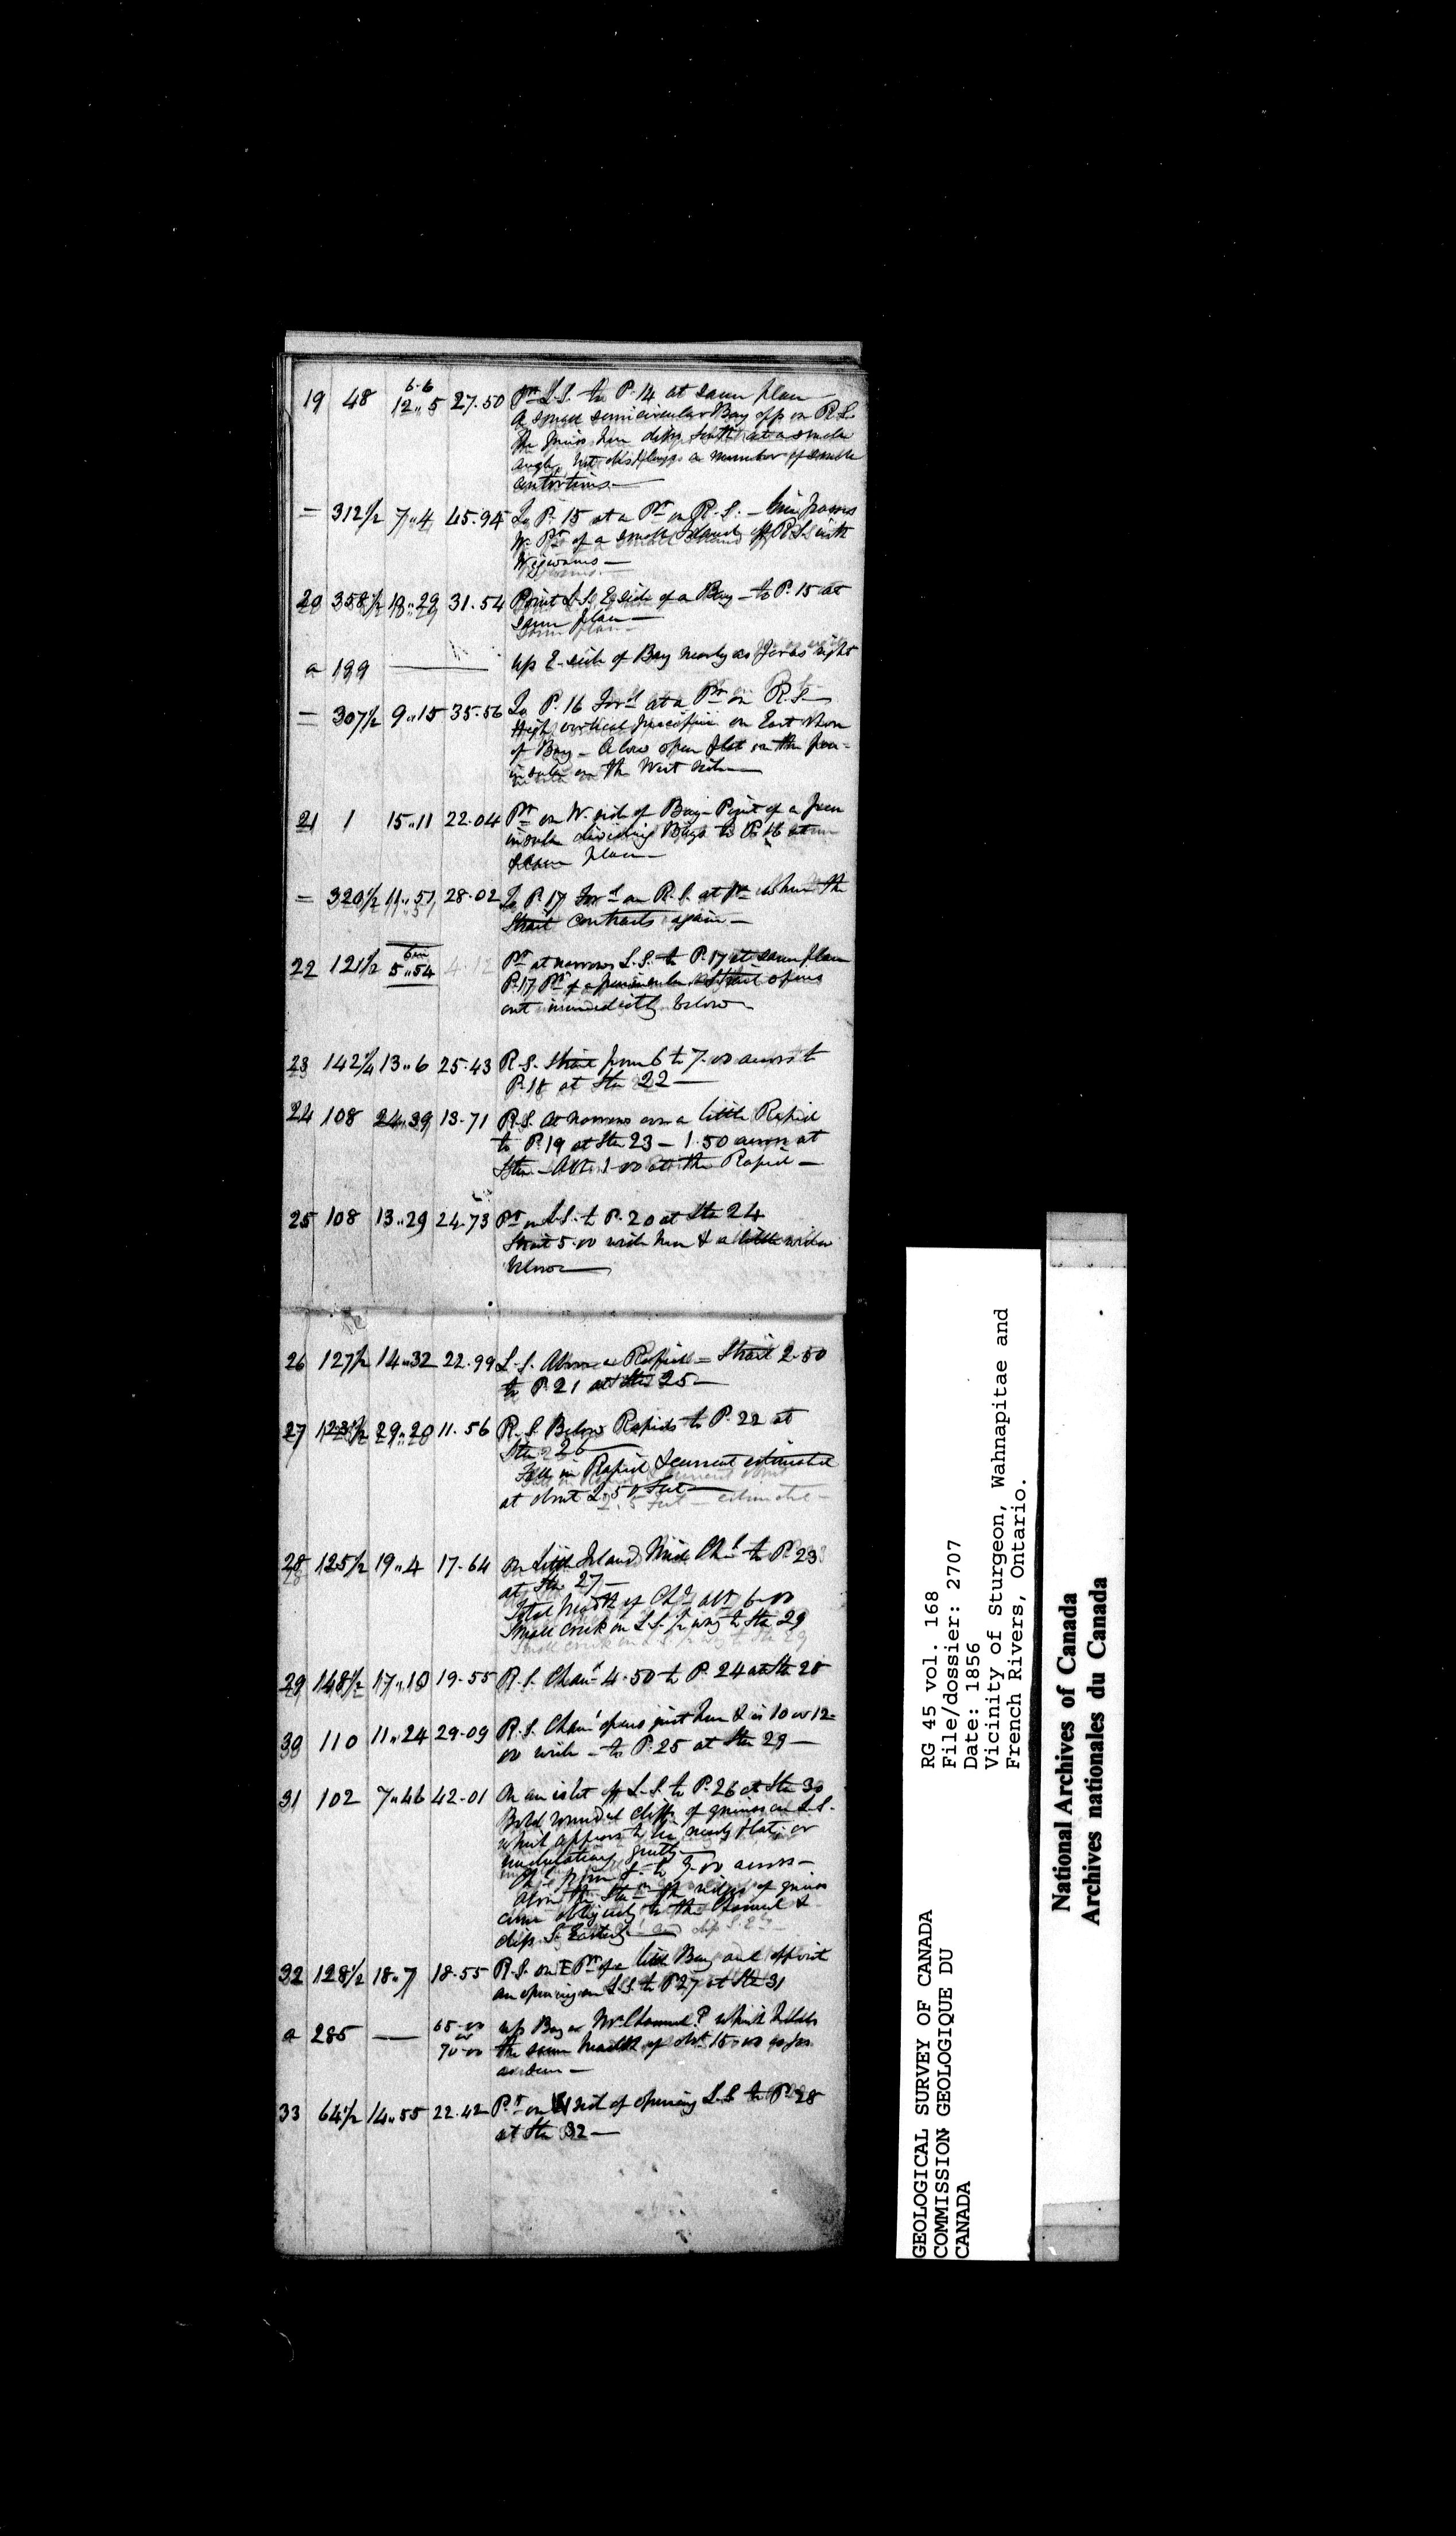 6-6
19 48 12,,5 27.50 Pt L.S. to P. 14 at same place
A small semicircular Bay opp on R.S.
The gneiss here dips South at a small
angle, but displays a number of small
contortions —
= 312 1/2 7,,4 45.94 To P. 15 at a Pt on R.S. — line passes
W. Pt of a small Island off R.S. with
Wigwams —
20 358 1/2 18,,29 31.54 Point L.S. E. side of a Bay — to P. 15 at
same place —
a 199 — up E. side of Bay nearly as far as sight
= 307 1/2 9,,15 35.56 To P. 16 Forwd at a Pt on R.S. —
High vertical precipice on East shore
of Bay — A low open flat on the pen-
insula on the West side —
21 1 15,,11 22.04 Pt on W. side of Bay — Point of a pen
insula dividing Bays to P. 16 at
same place —
= 320 1/2 11,,51 28.02 To P. 17 Forwd on R.S. at Pt where the
Strait contracts again —
22 121 1/2 5,,54 4.12 Pt at narrows L.S. to P. 17 at same place
P. 17 Pt of a peninsula. Strait opens
out immediately below
23 142 1/4 13,,6 25.43 R.S. Strait from 6 to 7.00 across to
P. 18 at Stn 22 —
24 108 24,,39 13.71 R.S. At narrows over a little Rapid
to P. 19 at Stn 23 — 1.50 across at
Stn — Abt 1.00 at the Rapid —
25 108 13,,29 24.73 Pt on L.S. to P. 20 at Stn 24
Strait 5.00 wide here & a little wider
below —
26 127 1/2 14,,32 22.99 L.S. Above a Rapid — Strait 2.50
to P. 21 at Stn 25 —
27 123 1/2 29,,20 11.56 R.S. Below Rapids to P. 22 at
Stn 26
Fall in Rapid & current estimated
at about 2.50 Feet —
28 125 1/2 19,,4 17.64 On Little Island Mid Chl to P. 23
at Stn 27 —
Total breadth of Chl abt 6.00
Small creek on L.S. 1/2 way to Stn 29
29 148 1/2 17,,10 19.55 R.S. Chanl 4.50 to P. 24 at Stn 28
30 110 11,,24 29.09 R.S. Chanl opens just here & is 10 or 12-
00 wide — to P. 25 at Stn 29 —
31 102 7,,46 42.01 On an islet off L.S. to P. 26 at Stn 30
Bold rounded cliffs of gneiss on L.S.
which appears to lie nearly flat, or
undulating gently —
Chl from 8. to 9.00 across —
Above the Stn the ridges of gneiss
come obliquely to the Channel &
dip S. Easterly —
32 128 1/2 18,,7 18.55 R.S. on E Pt of a little Bay and opposite
an opening on L.S. to P. 27 at Stn 31
a 285 — 65.00 or 70.00 up Bay or Chanel? which holds
the same breadth of abt 15.00 as far
as seen —
33 64 1/2 14,,55 22.42 Pt on side of opening L.S. to P. 28
at Stn 32 —
GEOLOGICAL SURVEY OF CANADA
COMMISSION GEOLOGIQUE DU
CANADA
RG 45 vol. 168
File/dossier: 2707
Date: 1856
Vicinity of Sturgeon, Wahnapitae and
French Rivers, Ontario.
National Archives of Canada
Archives nationales du Canada